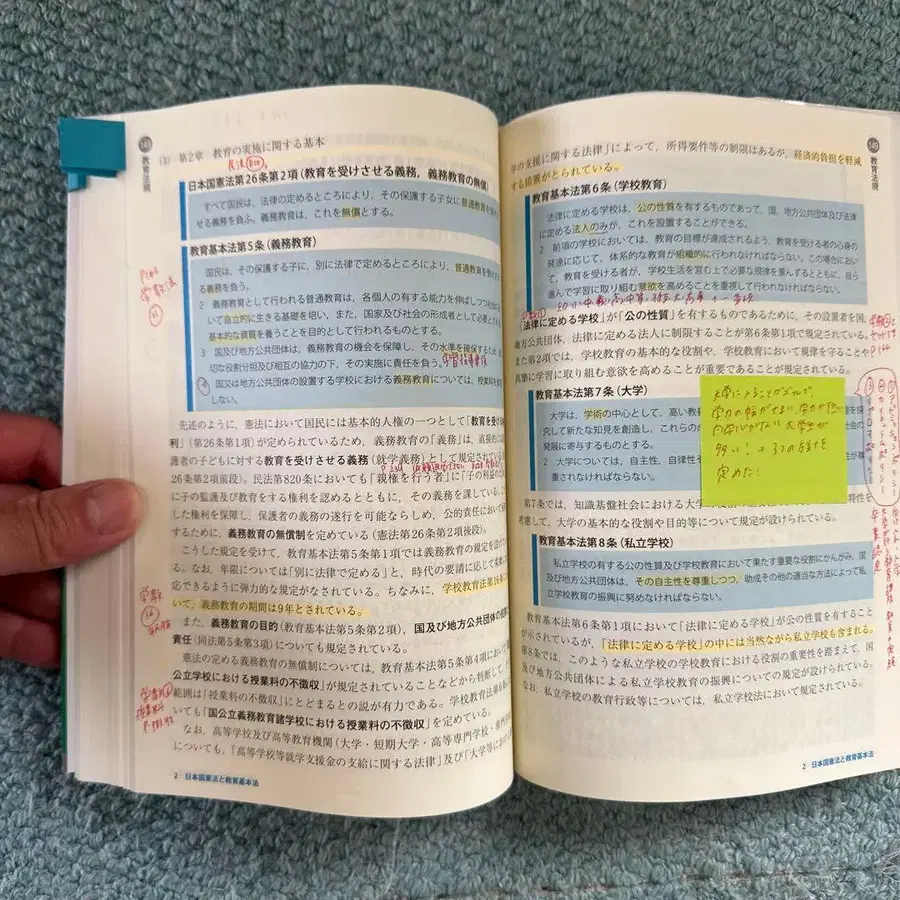 148
教育法規
(3) 第2章 教育の実施に関する基本
日本国憲法第26条第2項(教育を受けさせる義務，義務教育の無償)
すべて国民は、法律の定めるところにより、その保護する子女に普通教育を
せる義務を負ふ。義務教育は、これを無償とする。
教育基本法第5条(義務教育)
国民は、その保護する子に、別に法律で定めるところにより、普通教育を受け
る義務を負う。
2 義務教育として行われる普通教育は、各個人の有する能力を伸ばしつつ社会に
いて自立的に生きる基礎を培い、また、国家及び社会の形成者として必要とされ
基本的な資質を養うことを目的として行われるものとする。
3 国及び地方公共団体は、義務教育の機会を保障し、その水準を確保するため、
切な役割分担及び相互の協力の下、その実施に責任を負う。
4 国又は地方公共団体の設置する学校における義務教育については、授業料を
しない。
先述のように，憲法において国民には基本的人権の一つとして「教育を受け
利」(第26条第1項)が定められているため，義務教育の「義務」は，直接的には
護者の子どもに対する教育を受けさせる義務(就学義務)として規定されている
26条第2項前段)。民法第820条においても「親権を行う者」に「子の利益のため
に子の監護及び教育をする権利を認めるとともに，その義務を課している。こ
した権利を保障し，保護者の義務の遂行を可能ならしめ，公的責任において
するために，義務教育の無償制を定めている(憲法第26条第2項後段)。
こうした規定を受けて，教育基本法第5条第1項では義務教育の規定を設けて
る。なお，年限については「別に法律で定める」と，時代の要請に応じて柔軟に
応できるように弾力的な規定がなされている。ちなみに，学校教育法第16条に
いて，義務教育の期間は9年とされている。
また，義務教育の目的(教育基本法第5条第2項)，国及び地方公共団体の役割
責任(同法第5条第3項)についても規定されている。
憲法の定める義務教育の無償制については，教育基本法第5条第4項において
公立学校における授業料の不徴収」が規定されていることなどから判断して，
範囲は「授業料の不徴収」にとどまるとの説が有力である。学校教育法第6条
いても「国公立義務教育諸学校における授業料の不徴収」を定めている。
なお，高等学校及び高等教育機関(大学・短期大学・高等専門学校・専門
についても，「高等学校等就学支援金の支給に関する法律」及び「大学等にお
2 日本国憲法と教育基本法
149
教育法規
学の支援に関する法律」によって，所得要件等の制限はあるが，経済的負担を軽減
する措置がとられている。
教育基本法第6条(学校教育)
法律に定める学校は、公の性質を有するものであって、国、地方公共団体及び法律
に定める法人のみが、これを設置することができる。
2 前項の学校においては、教育の目標が達成されるよう、教育を受ける者の心身の
発達に応じて、体系的な教育が組織的に行われなければならない。この場合におい
て、教育を受ける者が、学校生活を営む上で必要な規律を重んずるとともに、自ら
進んで学習に取り組む意欲を高めることを重視して行われなければならない。
「法律に定める学校」が「公の性質」を有するものであるために，その設置者を国，
地方公共団体，法律に定める法人に制限することが第6条第1項で規定されている。
また第2項では，学校教育の基本的な役割や，学校教育において規律を守ることや
真摯に学習に取り組む意欲を高めることが重要であることが規定されている。
教育基本法第7条(大学)
大学は、学術の中心として、高い教
究して新たな知見を創造し、これらの成
発展に寄与するものとする。
2 大学については、自主性、自律性そ
重されなければならない。
第7条では，知識基盤社会における大学
考慮して，大学の基本的な役割や目的等について規定が設けられている。
教育基本法第8条(私立学校)
私立学校の有する公の性質及び学校教育において果たす重要な役割にかんがみ、国
及び地方公共団体は、その自主性を尊重しつつ、助成その他の適当な方法によって私
立学校教育の振興に努めなければならない。
教育基本法第6条第1項において「法律に定める学校」が公の性質を有すること
が示されているが，「法律に定める学校」の中には当然ながら私立学校も含まれる。
第8条では，このような私立学校の学校教育における役割の重要性を踏まえて，国
及び地方公共団体による私立学校教育の振興についての規定が設けられている。
なお，私立学校の教育行政等については，私立学校法において規定されている。
2 日本国憲法と教育基本法